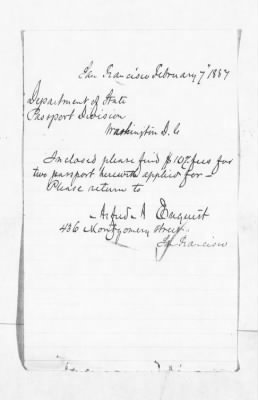 San Francisco February 7th 1887
Department of State
Passport Division
Washington D. C
Inclosed please find $ fees for
two passport herewith applied for –
Please return to
– Alfred A Enquist
436 Montgomery street
San Francisco